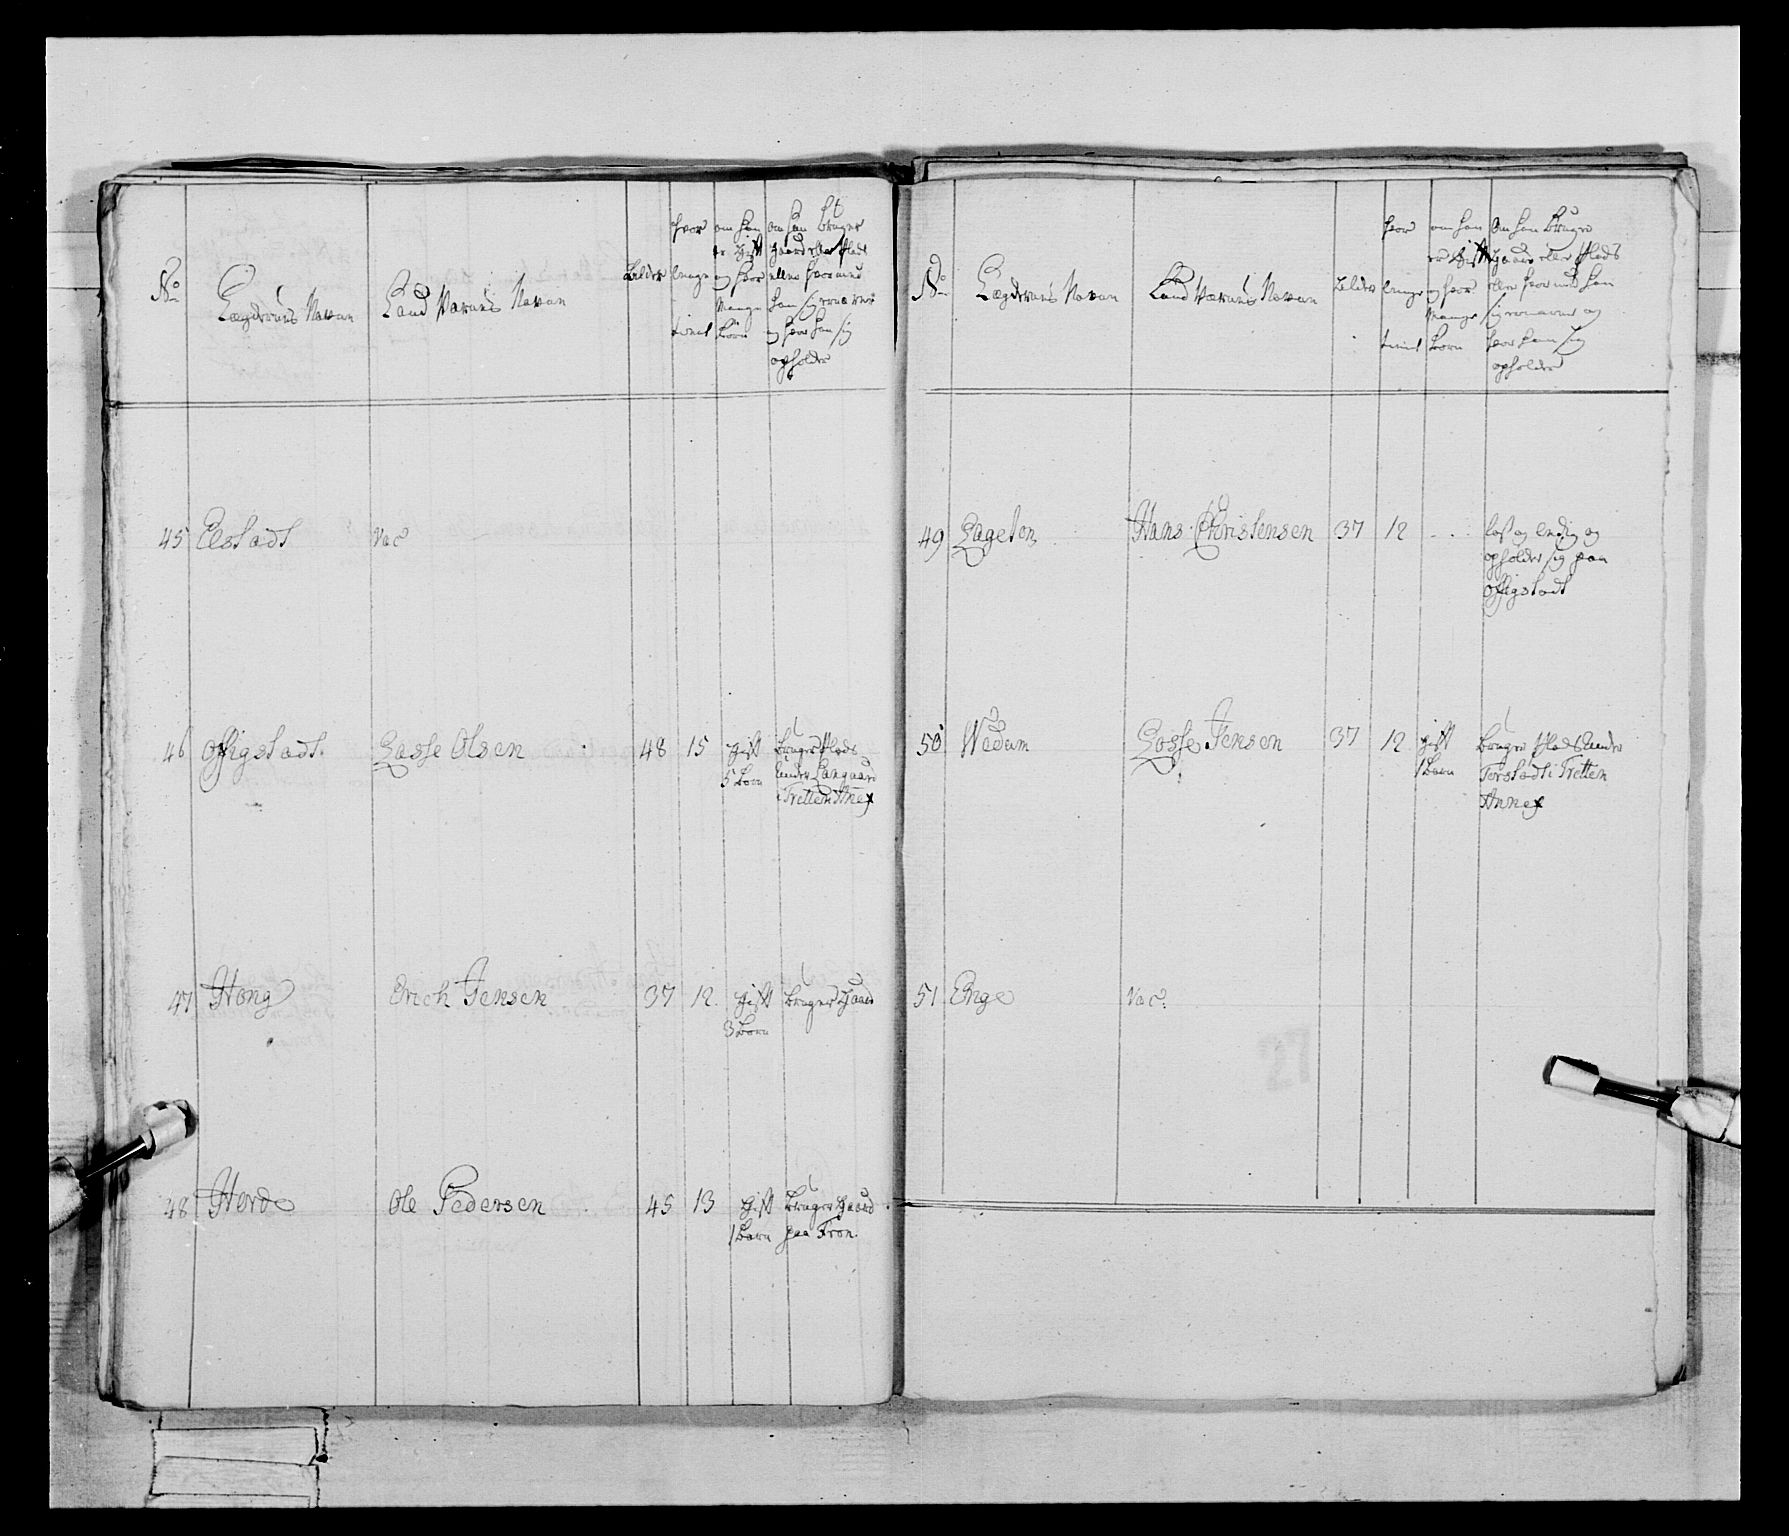 No
Lægdernes Navne
Land Værnes Navne
Alder
hvor
længe
tient
om han
er gift
og hvor
Mange
Børn
om han bruger
gaard eller Plads
eller hvormed
han sig ernærer
og hvor han sig
opholder
45 Elstadt Vac
46 Offigstadt Lasse Olsen 48 15 gift bruger Plads
5 Børn under Langaard
i Tretten Anex
47 Hong Erich Jensen 37 12 gift bruger gaard
3 Børn
48 Horde Ole Pedersen 45 13 gift bruger gaard
1 Barn paa Fron
No
Lægdernes Navne
Land Værnes Navne
Alder
hvor
længe
tient
om han
er gift
og hvor
Mange
Børn
Om han bruger
gaard eller Plads
eller hvormed han
sig ernærer og
hvor han sig
opholder
49 Lageton Hans Christensen 37 12 . . løs og ledig og
opholder sig paa
Offigstadt
50 Wedum Losse Jensen 37 12 gift bruger Plads under
1 Barn Forstadt i Tretten
Annex
51 Enge Vac.
27